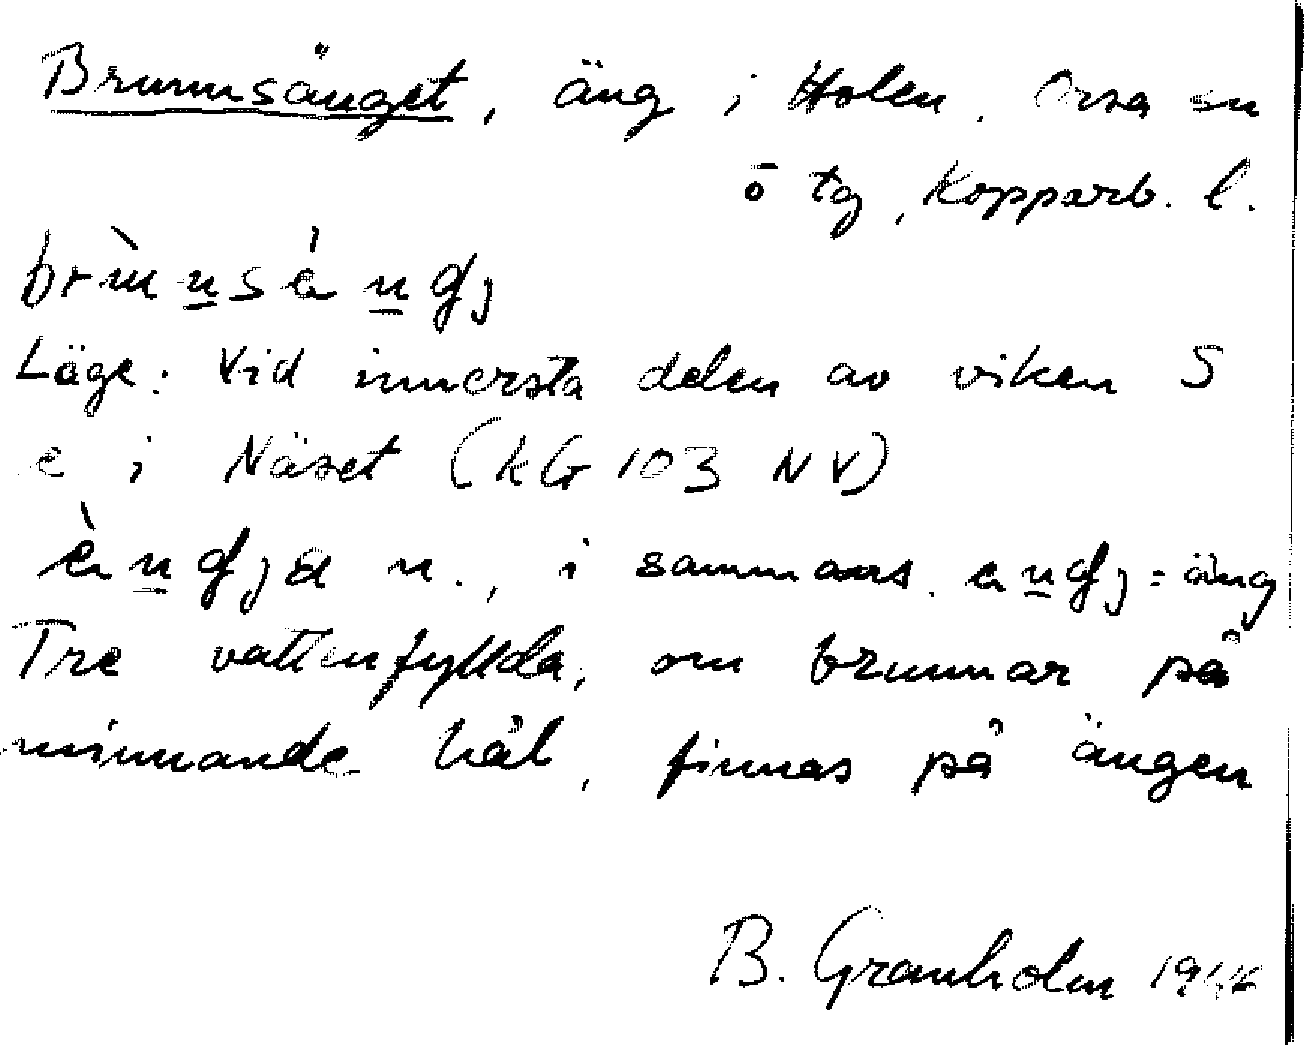 Brunnsänget, äng i Holen. Orsa sn
ö tg, Kopparb. l.
Läge: Vid innersta delen av viken S
e i Näset (KG 103 NV)
n., i sammans. = äng
Tre vattenfyllda, om brunnar på
minnande hål, finnas på ängen
B. Granholm